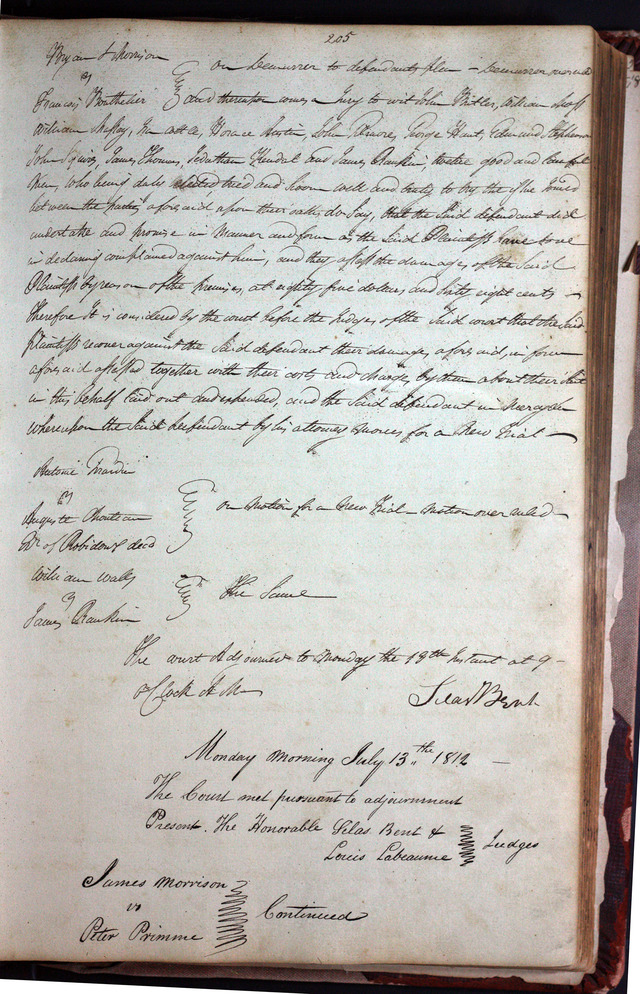 205
Bryan & Morrison
vs
Francis Bouthelier
on Demurrer to defendants plea – Demurrer overruled
and thereupon comes a Jury to wit John Butler, William Scott
William Horace Austin, John George Hunt, Edmund Stephenson
John Squires, James Thomas, Jedathan Kendal and James Rankin, twelve good and lawful
Men, who being duly elected tried and sworn well and truly to try the issue Joined
between the parties aforesaid upon their oaths do Say, that the Said defendant did
undertake and promise in Manner and form as the Said Plaintiffs have
in declaring complained against him, and they assess the damages of the Said
Plaintiffs by reason of the premises, at eighty five dollars and sixty eight cents –
Therefore It is considered by the court before the Judges of the Said court that the Said
Plaintiffs recover against the Said defendant their damages aforesaid, in form
aforesaid assessed together with their costs and charges by them about their Suit
in this behalf laid out and expended, and the Said defendant in Mercy &c
whereupon the Said defendant by his attorney moves for a New Trial –
Antoine
vs
Auguste Chouteau
Exr. of Robidoux decd
on Motion for a New Trial – Motion over ruled
William Walls
vs
James Rankin
the Same
The court Adjourned to Monday the 13th Instant at 9 –
oClock A M
Silas Bent
Monday morning July 13th 1812 –
The Court met pursuant to adjournment
Present. The Honorable Silas Bent &
Louis Labeaume Judges
James Morrison
vs
Peter Primme
Continued